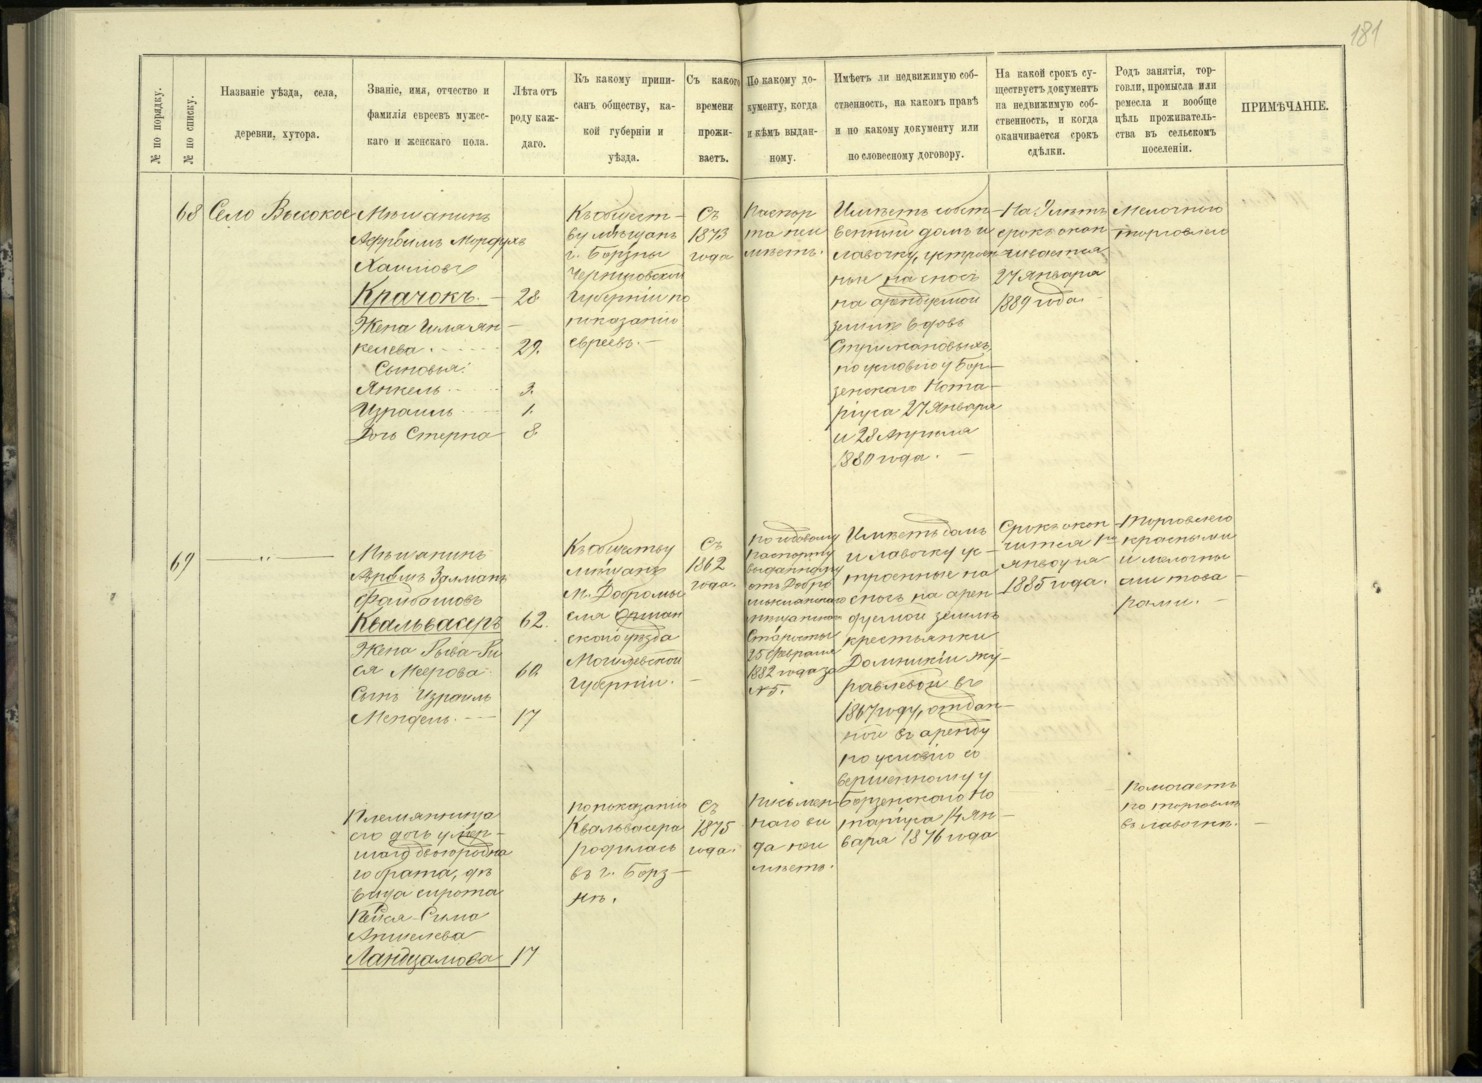 181
№ по порядку.
№ по списку.
Названіе уѣзда, села,
деревни, хутора.
Званіе, имя, отчество и
фамилія евреевъ мужес-
каго и женскаго пола.
Лѣта отъ
роду каж-
даго.
Къ какому припи-
санъ обществу, ка-
кой губерніи и
уѣзда.
Съ какого
времени
прожи-
ваетъ.
По какому до-
кументу, когда
и кѣмъ выдан-
ному.
Имѣетъ ли недвижимую соб-
ственность, на какомъ правѣ
и по какому документу или
по словесному договору.
На какой срокъ су-
ществуетъ документъ
на недвижимую соб-
ственность, и когда
оканчивается срокъ
сдѣлки.
Родъ занятія, тор-
говли, промысла или
ремесла и вообще
цѣль проживатель-
ства въ сельскомъ
поселеніи.
ПРИМѢЧАНІЕ.
68
Село Высокое
Мѣщанинъ
Хаимовъ
Крачокъ. -
Жена
келева.
Сыновья:
Янкель
Израиль
Дочь Стерна
28
29.
3.
1.
8
Къ общест-
ву мѣщанъ
г. Борзны
Черниговской
Губерніи по
показанію
евреевъ. -
Съ
1873
года
Паспор
та не и
мѣетъ.
Имѣетъ собст
венный домъ и
лавочку, устроен
ные на сносъ
на арендуемой
землѣ вдовъ
по условію у Бор-
зенскаго Нота-
ріуса 27 Января
и 28 Апрѣля
1880 года. -
На 9 лѣтъ
срокъ окан
чивается
27 Января
1889 года.
Мелочною
торговлею
69
— " —
Мѣщанинъ
Залманъ
Файбашовъ
Квальвасеръ
Жена Рыва-Ли
ся Меерова
Сынъ Израиль
Мендель. ---
62.
60
17
Къ обществу
мѣщанъ
м. Добромы
сля Оршан
скаго уѣзда
Могилевской
Губерніи. -
Съ
1862
года.
По годовому
паспорту
выданному
отъ Добро
мыслянскаго
мѣщанскаго
Старосты
25 Февраля
1882 года за
№ 5.
Имѣетъ домъ
и лавочку ус-
троенные на
сносъ на арен-
дуемой землѣ
крестьянки
Домникіи Жу-
равлевой въ
1867 году, отдан-
ной въ аренду
по условію со
вершенному у
Борзенскаго Но
таріуса 14 Ян-
варя 1876 года
Срокъ окон
чится 1го
января
1885 года.
Торговлею
красными
и мелочны
ми това
рами. -
Племянница
его дочь умер-
шаго двоюродна
го брата, дѣ
вица сирота
Пейся-Сима
Апшелева
Ландцамова
17
По показанію
Квальвасера
родилась
въ г. Борз-
нѣ.
Съ
1875
года.
Письмен-
наго ви
да не и
мѣетъ.
Помогаетъ
по торговлѣ
въ лавочкѣ. -